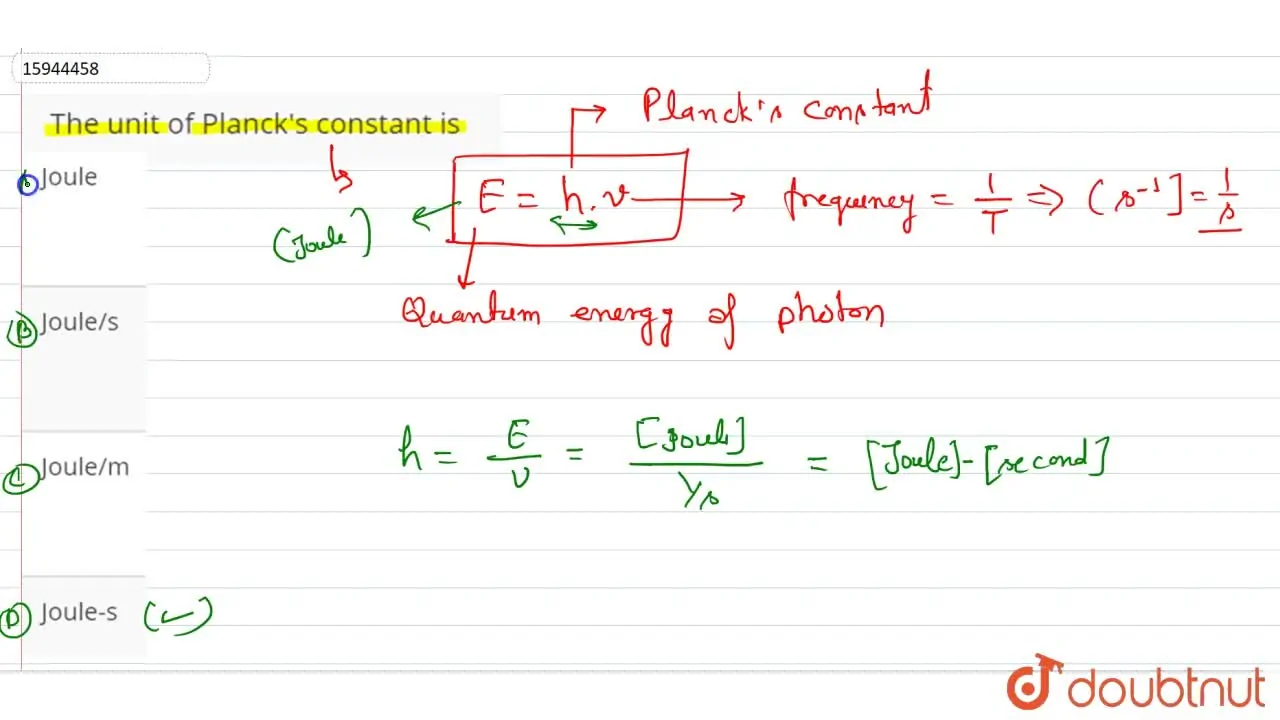 15944458
The unit of Planck's constant is
Planck's constant
A Joule
E = h.ν
frequency = 1/T ⇒ (s⁻¹] = 1/s
(Joule]
Quantum energy of photon
B Joule/s
h = E/ν = [Joule]/1/s = [Joule]-[second]
C Joule/m
D Joule-s (✓)
doubtnut